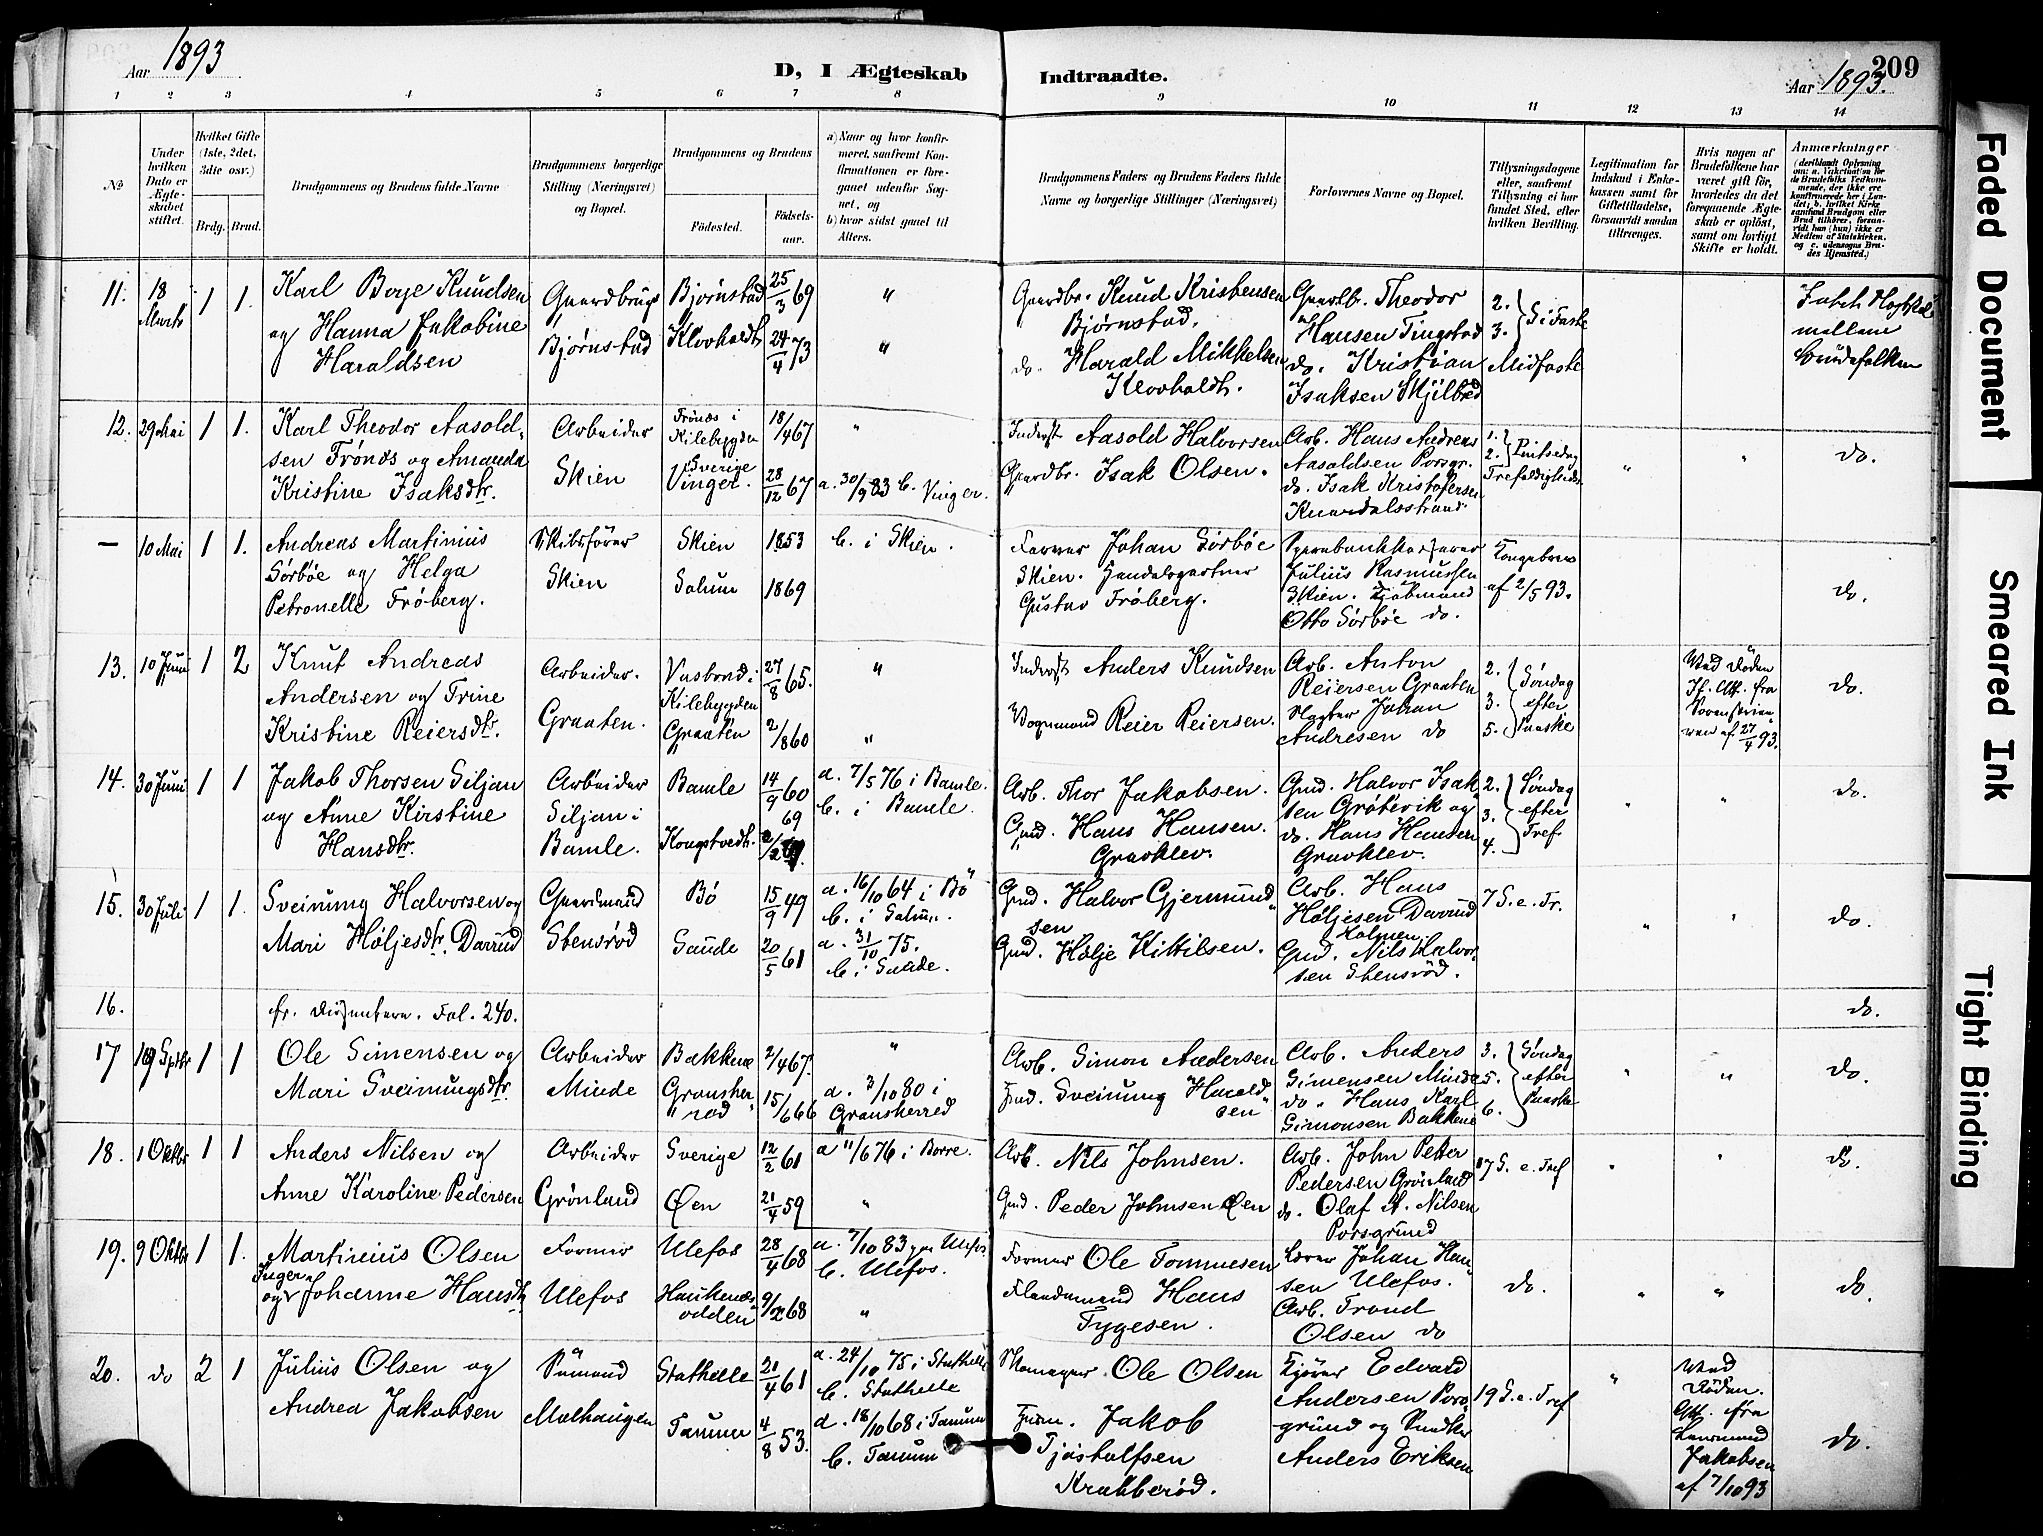 Aar 1893
D, I Ægteskab
Indtraadte.
209
Aar 1893.
1 2 3 4 5 6 7 8 9 10 11 12 13 14
No
Under hvilken Dato er Ægteskabet stiftet.
Hvilket Gifte (1ste, 2det, 3die osv.)
Brdg. Brud.
Brudgommens og Brudens fulde Navne
Brudgommens borgerlige Stilling (Næringsvei) og Bopæl.
Brudgommens og Brudens
Fødested.
Fødselsaar.
a) Naar og hvor konfirmeret, saafremt Konfirmationen er foregaaet udenfor Sognet, og
b) hvor sidst gaaet til Alters.
Brudgommens Faders og Brudens Faders fulde Navne og borgerlige Stillinger (Næringsvei)
Forlovernes Navne og Bopæl.
Tillysningsdagene eller, saafremt Tillysning ei har fundet Sted, efter hvilken Bevilling.
Legitimation for Indskud i Enkekassen samt for Giftetilladelse, forsaavidt saadan tiltrænges.
Hvis nogen af Brudefolkene har været gift før, hvorledes da det foregaaende Ægteskab er opløst, samt om lovligt Skifte er holdt.
Anmærkninger
(deriblandt Oplysning om: a. Vakcination for de Brudefolks Vedkommende, der ikke ere konfirmerede her i Landet; b. hvilket Kirkesamfund Brudgom eller Brud tilhører, forsaavidt han (hun) ikke er Medlem af Statskirken, og c. udensogns Brudes Hjemsted.)
11. 18 Marts 1 1.
Karl Borge Knudsen
og Hanna Jakobine
Haraldsen
Gaardbrug
Bjørnstad
Bjørnstad 25/3 69 "
Klovholdt 24/4 73 "
Gaardbr. Knud Kristensen
Bjørnstad.
do. Harald Mikkelsen
Klovholdt.
Gaardb. Theodor
Hansen Tingstad
do. Kristian
Isaksen Skjilbred
2.
3. S i Faste
Midfaste
mellem
Brudefolken
12. 29 Mai 1 1.
Karl Theodor Aasold-
sen Frönæs og Amanda
Kristine Isaksdtr.
Arbeider
Skien
Frönæs i
Kilebygden 18/4 67 "
Sverige
Vinger. 28/12 67 a. 30/9 83 b. Vinger.
Inderst Aasold Halvorsen
Gaardbr. Isak Olsen.
Arb. Hans Andreas
Aasoldsen Porsgr.
do. Isak Kristofersen
Knardalsstrand.
1.
2. Pintsedag
Trefoldigheds
" " do.
— 10 Mai 1 1.
Andreas Martinius
Sørbøe og Helga
Petronelle Fröberg.
Skibsfører
Skien
Skien 1853 b. i Skien.
Solum 1869
Farver Johan Sörböe
Skien. Handelsgartner
Gustav Fröberg.
Sparebankkasserer
Julius Rasmussen
Skien. Kjøbmand
Otto Sörböe do.
Kongebrev
af 2/5 93.
do.
13. 10 Juni 1 2
Knut Andreas
Andersen og Trine
Kristine Reiersdtr.
Arbeider.
Graaten.
Vasbond i
Kilebygden 27/8 65. "
Graaten 2/8 60 "
Inderst Anders Knudsen
Vognmand Reier Reiersen.
Arb. Anton
Reiersen Graaten
Johan
Andresen do
2.
3.
5. Søndag
efter
Paaske
Ved Døden
If. Att. fra
Sorenskriveren
af 27/4 93.
do.
14. 30 Juni 1 1
Jakob Thorsen Siljan
og Anne Kirstine
Hansdtr.
Arbeider
Siljan i
Bamle.
Bamle 14/9 60 a. 7/5 76 i Bamle.
b. i Bamle.
Kongstvedt. 69
Arb. Thor Jakobsen.
Gmd. Hans Hansen.
Gravklev.
Gmd. Halvor Isak-
sen Grøtevik og
do. Hans Hansen
Gravklev.
2.
3.
4. Søndag
efter
Tref.
" " do.
15. 30 Juli 1 1.
Sveinung Halvorsen og
Mari Høljesdtr. Darrud
Gaardmand
Stensrød
Bø 15/9 49 a. 16/10 64 i Bø
b. i Solum.
Saude 20/5 61 a. 31/10 75.
b. i Saude.
Gmd. Halvor Gjermund-
sen
Gmd. Hølje Kittilsen.
Arb. Hans
Høljesen Darrud
Holmen.
Gmd. Nils Halvor-
sen Stensrød.
7 S. e. Tr.
" " do.
16.
fr. Dissentere. Fol. 240.
do.
17 10 Septbr 1 1
Ole Simensen og
Mari Sveinungsdtr.
Arbeider
Minde
Bakkene 2/4 67. "
Gransher-
red 15/6 66 a. 3/10 80 i
Gransherred
Arb. Simon Andersen
Sveinung Harald-
sen
Arb. Anders
Simensen Minde
do. Hans Karl
Simonsen Bakkene
3.
5.
6. Søndag
efter
Paaske
" " do.
18. 1 Oktbr 1 1
Anders Nilsen og
Anne Karoline Pedersen
Arbeider
Grønland
Sverige 12/2 61 a 11/6 76 i Borre.
Øen 21/4 59 "
Arb. Nils Johnsen.
Gmd. Peder Johnsen Øen
Arb. John Petter
Pedersen Grønland
do. Olaf A. Nilsen
Porsgrund
17 S. e. Tref
" " do.
19. 9 Oktbr 1 1.
Martinius Olsen
Inger
og Johanne Hansdtr
Former
Ulefos
Ulefos 28/4 68 a. 7/10 83 paa Ulefos
b. Ulefos.
Haukenæs-
odden 9/2 68 "
Former Ole Tommesen
Hans
Tygesen.
Johan Han-
sen Ulefos.
Arb. Trond
Olsen do
do.
" " do.
20. do 2 1
Julius Olsen og
Andrea Jakobsen
Sømand
Molhaugen
Stathelle 21/4 61 a. 24/10 75 i Stathelle
b. Stathelle
Tanum 4/8 53. a. 18/10 68 i Tanum
b. Tanum
Ole Olsen
Jakob
Tjøstolfsen
Krakberød.
Edvard
Andersen Pors-
grund og
Anders Eriksen
19 S. e. Tref
"
Ved
Døden.
Att. fra
Lensmand
Jakobsen
af 7/10 93
do.
Faded Document
Smeared Ink
Tight Binding